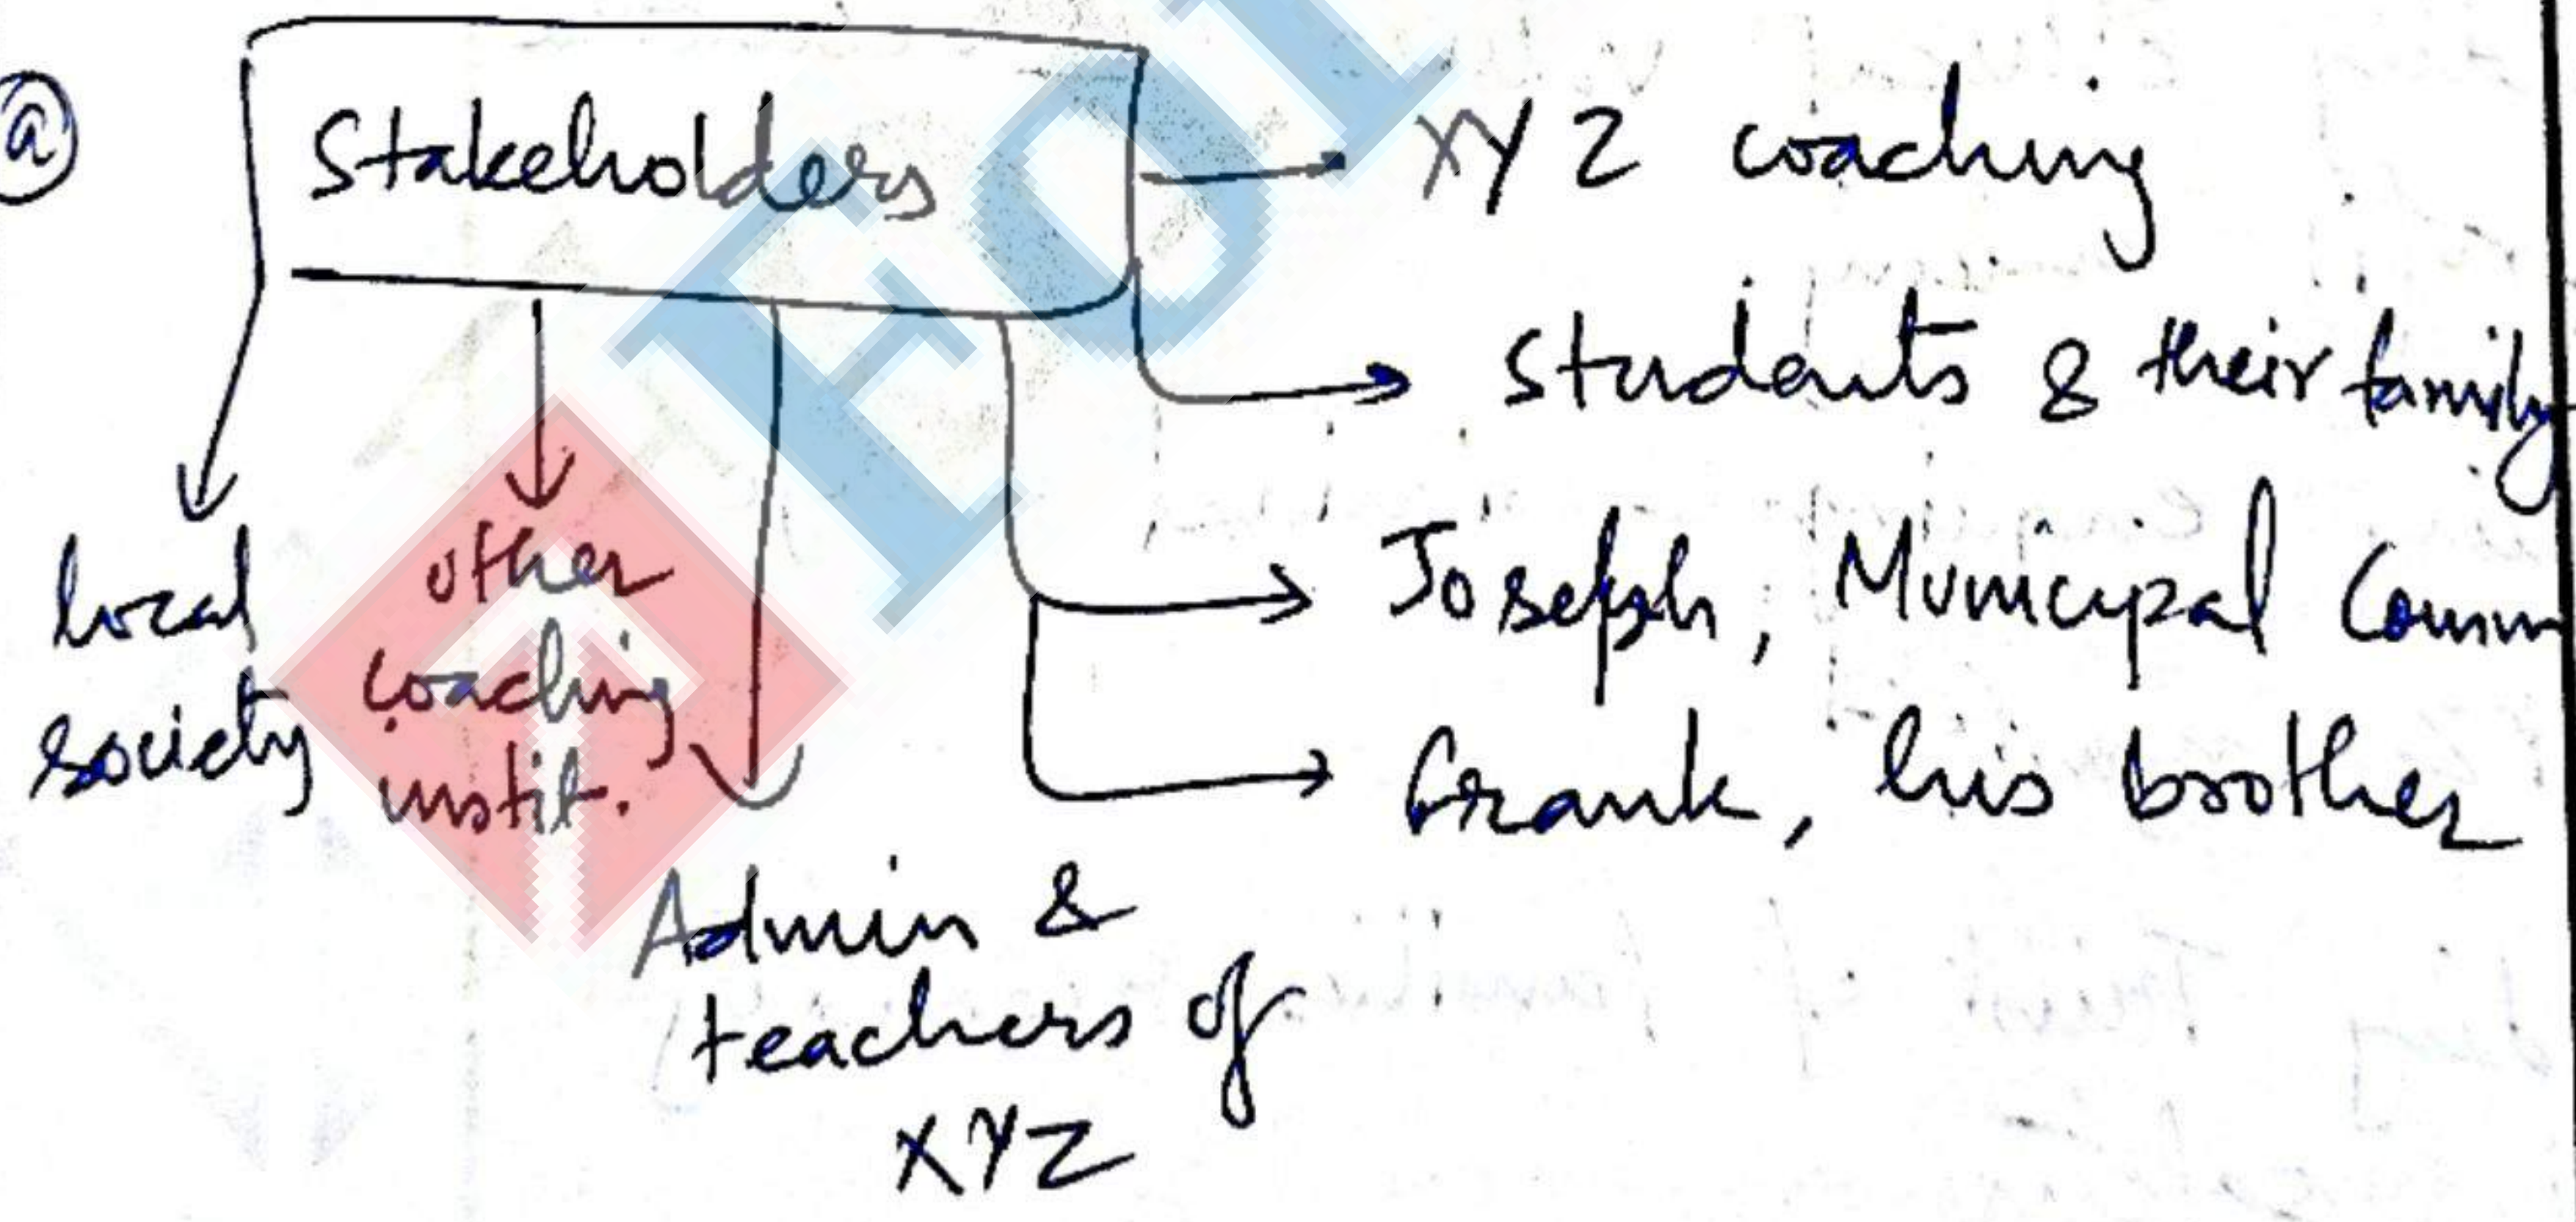 (a)
Stakeholders
XYZ coaching
students & their family
Joseph, Municipal Comm
Frank, his brother
local
society
other
coaching
instit.
Admin &
teachers of
XYZ